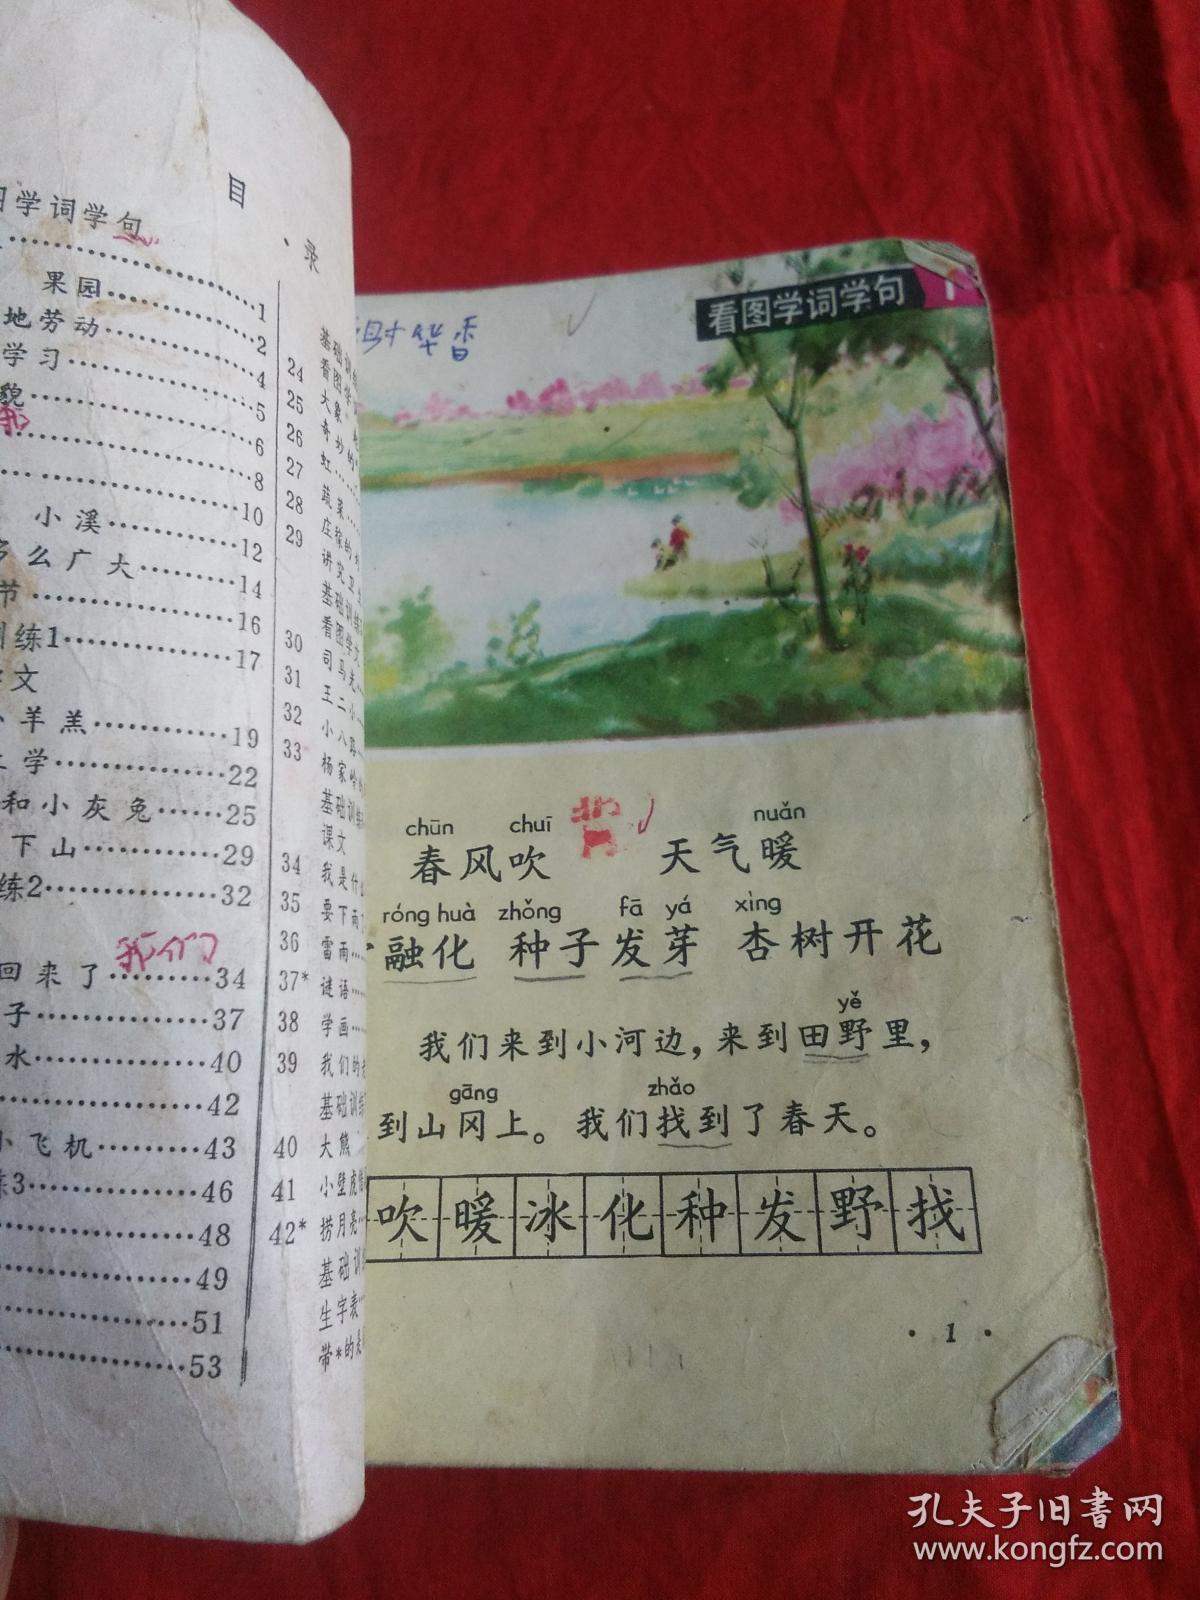 目录
学词学句
1
果园………2
地劳动………4
学习………5
貌………6
我
8
10
小溪………12
么广大………14
节………16
训练1………17
文
小羊羔………19
上学………22
和小灰兔……25
下山………29
练2………32
我们
回来了………34
子………37
水………40
42
小飞机………43
练3………46
48
49
51
53
基础训练
24 看图学
25 大象
26 奇妙的
27 虹……
28 蔬菜……
29 庄稼的
讲究卫生
基础训练
看图学文
30 司马光……
31 王二小
32 小八路
33 杨家岭
基础训练
课文
34 我是什么
35 要下雨
36 雷雨……
37* 谜语……
38 学画……
39 我们的
基础训练
40 大熊
41 小壁虎借
42* 捞月亮……
基础训
生字表……
带*的是
看图学词学句 1
华香
chūn chuī nuǎn
春风吹 背 天气暖
róng huà zhǒng fā yá xìng
融化 种子发芽 杏树开花
yě
我们来到小河边，来到田野里，
gāng zhǎo
到山冈上。我们找到了春天。
吹暖冰化种发野找
·1·
孔夫子旧书网
www.kongfz.com